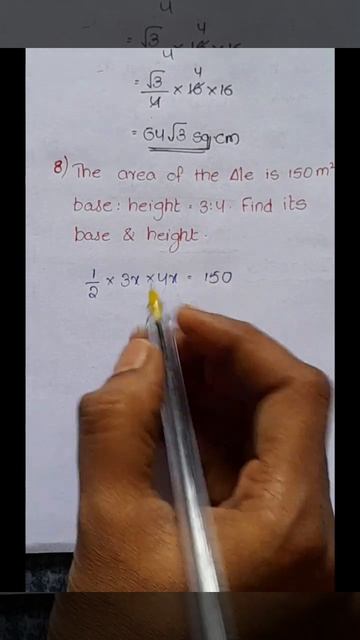 4
= √3
4 × 16 × 16
= √3/4 × 16 × 16
4
= 64√3 sq.cm
8) The area of the Δle is 150 m²
base : height = 3:4. Find its
base & height.
1/2 × 3x × 4x = 150